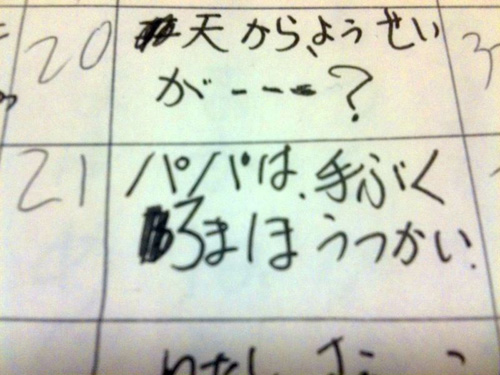 20 天から、ようせい
が---?
21 パパは、手ぶく
ろまほうつかい.
わたし